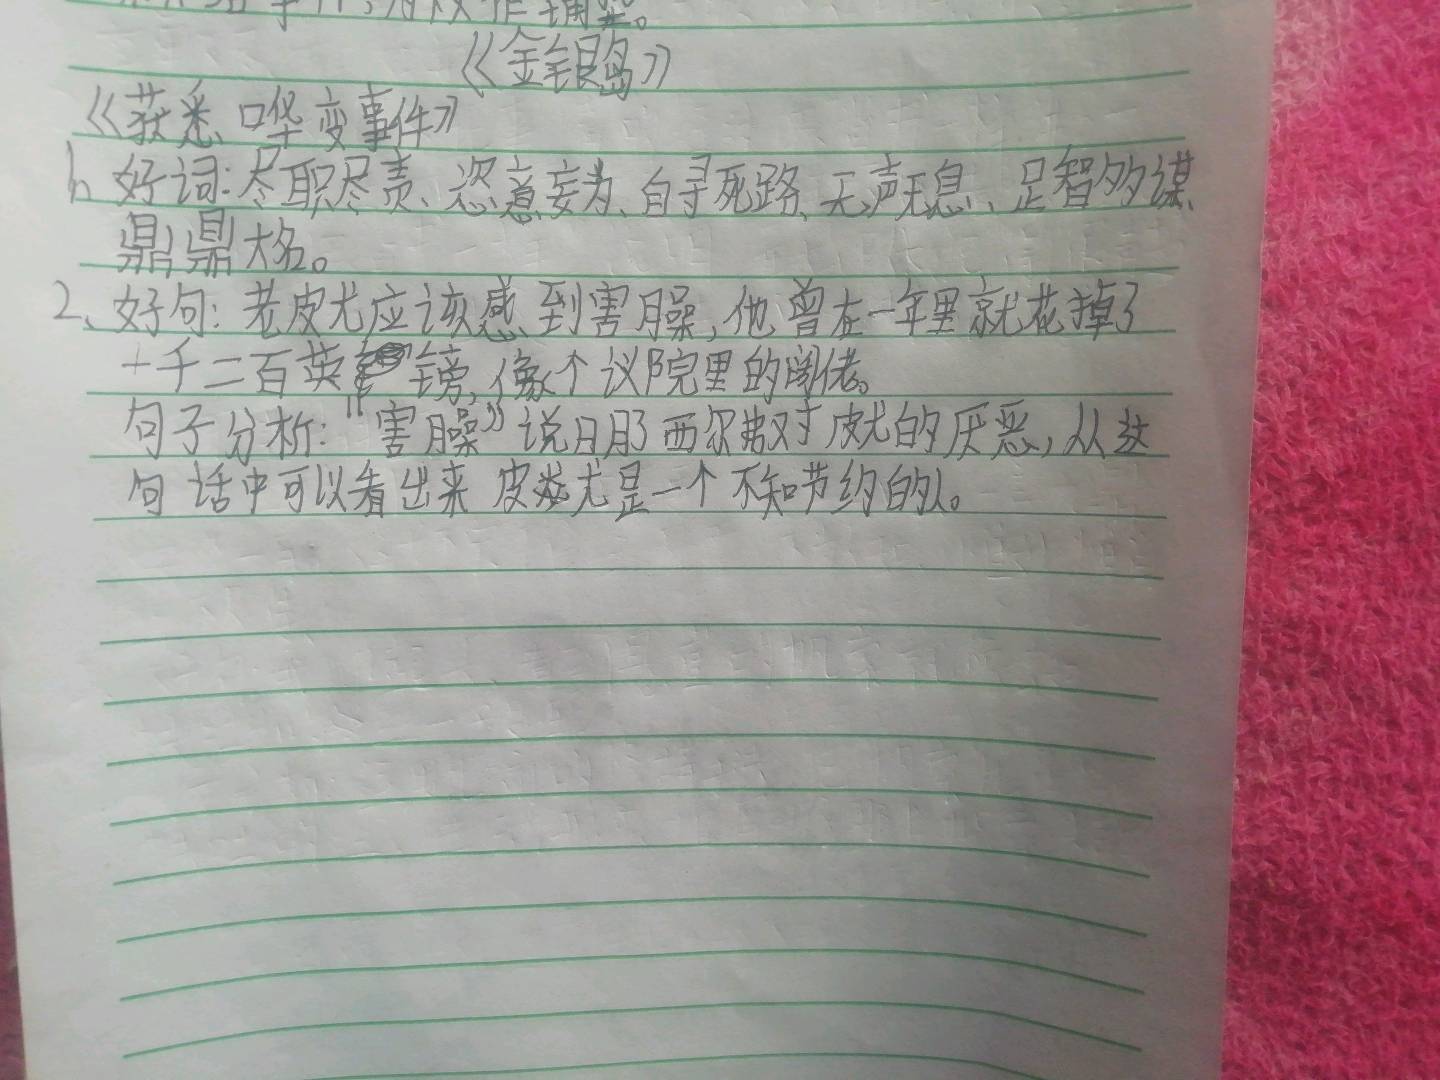 《金银岛》
《获悉哗变事件》
1、好词:尽职尽责、恣意妄为、自寻死路、无声无息、足智多谋、
鼎鼎大名。
2、好句:老皮尤应该感到害臊,他曾在一年里就花掉了
一千二百英镑,像个议院里的阔佬。
句子分析:“害臊”说明了西尔弗对皮尤的厌恶,从这
句话中可以看出来皮尤是一个不知节约的人。